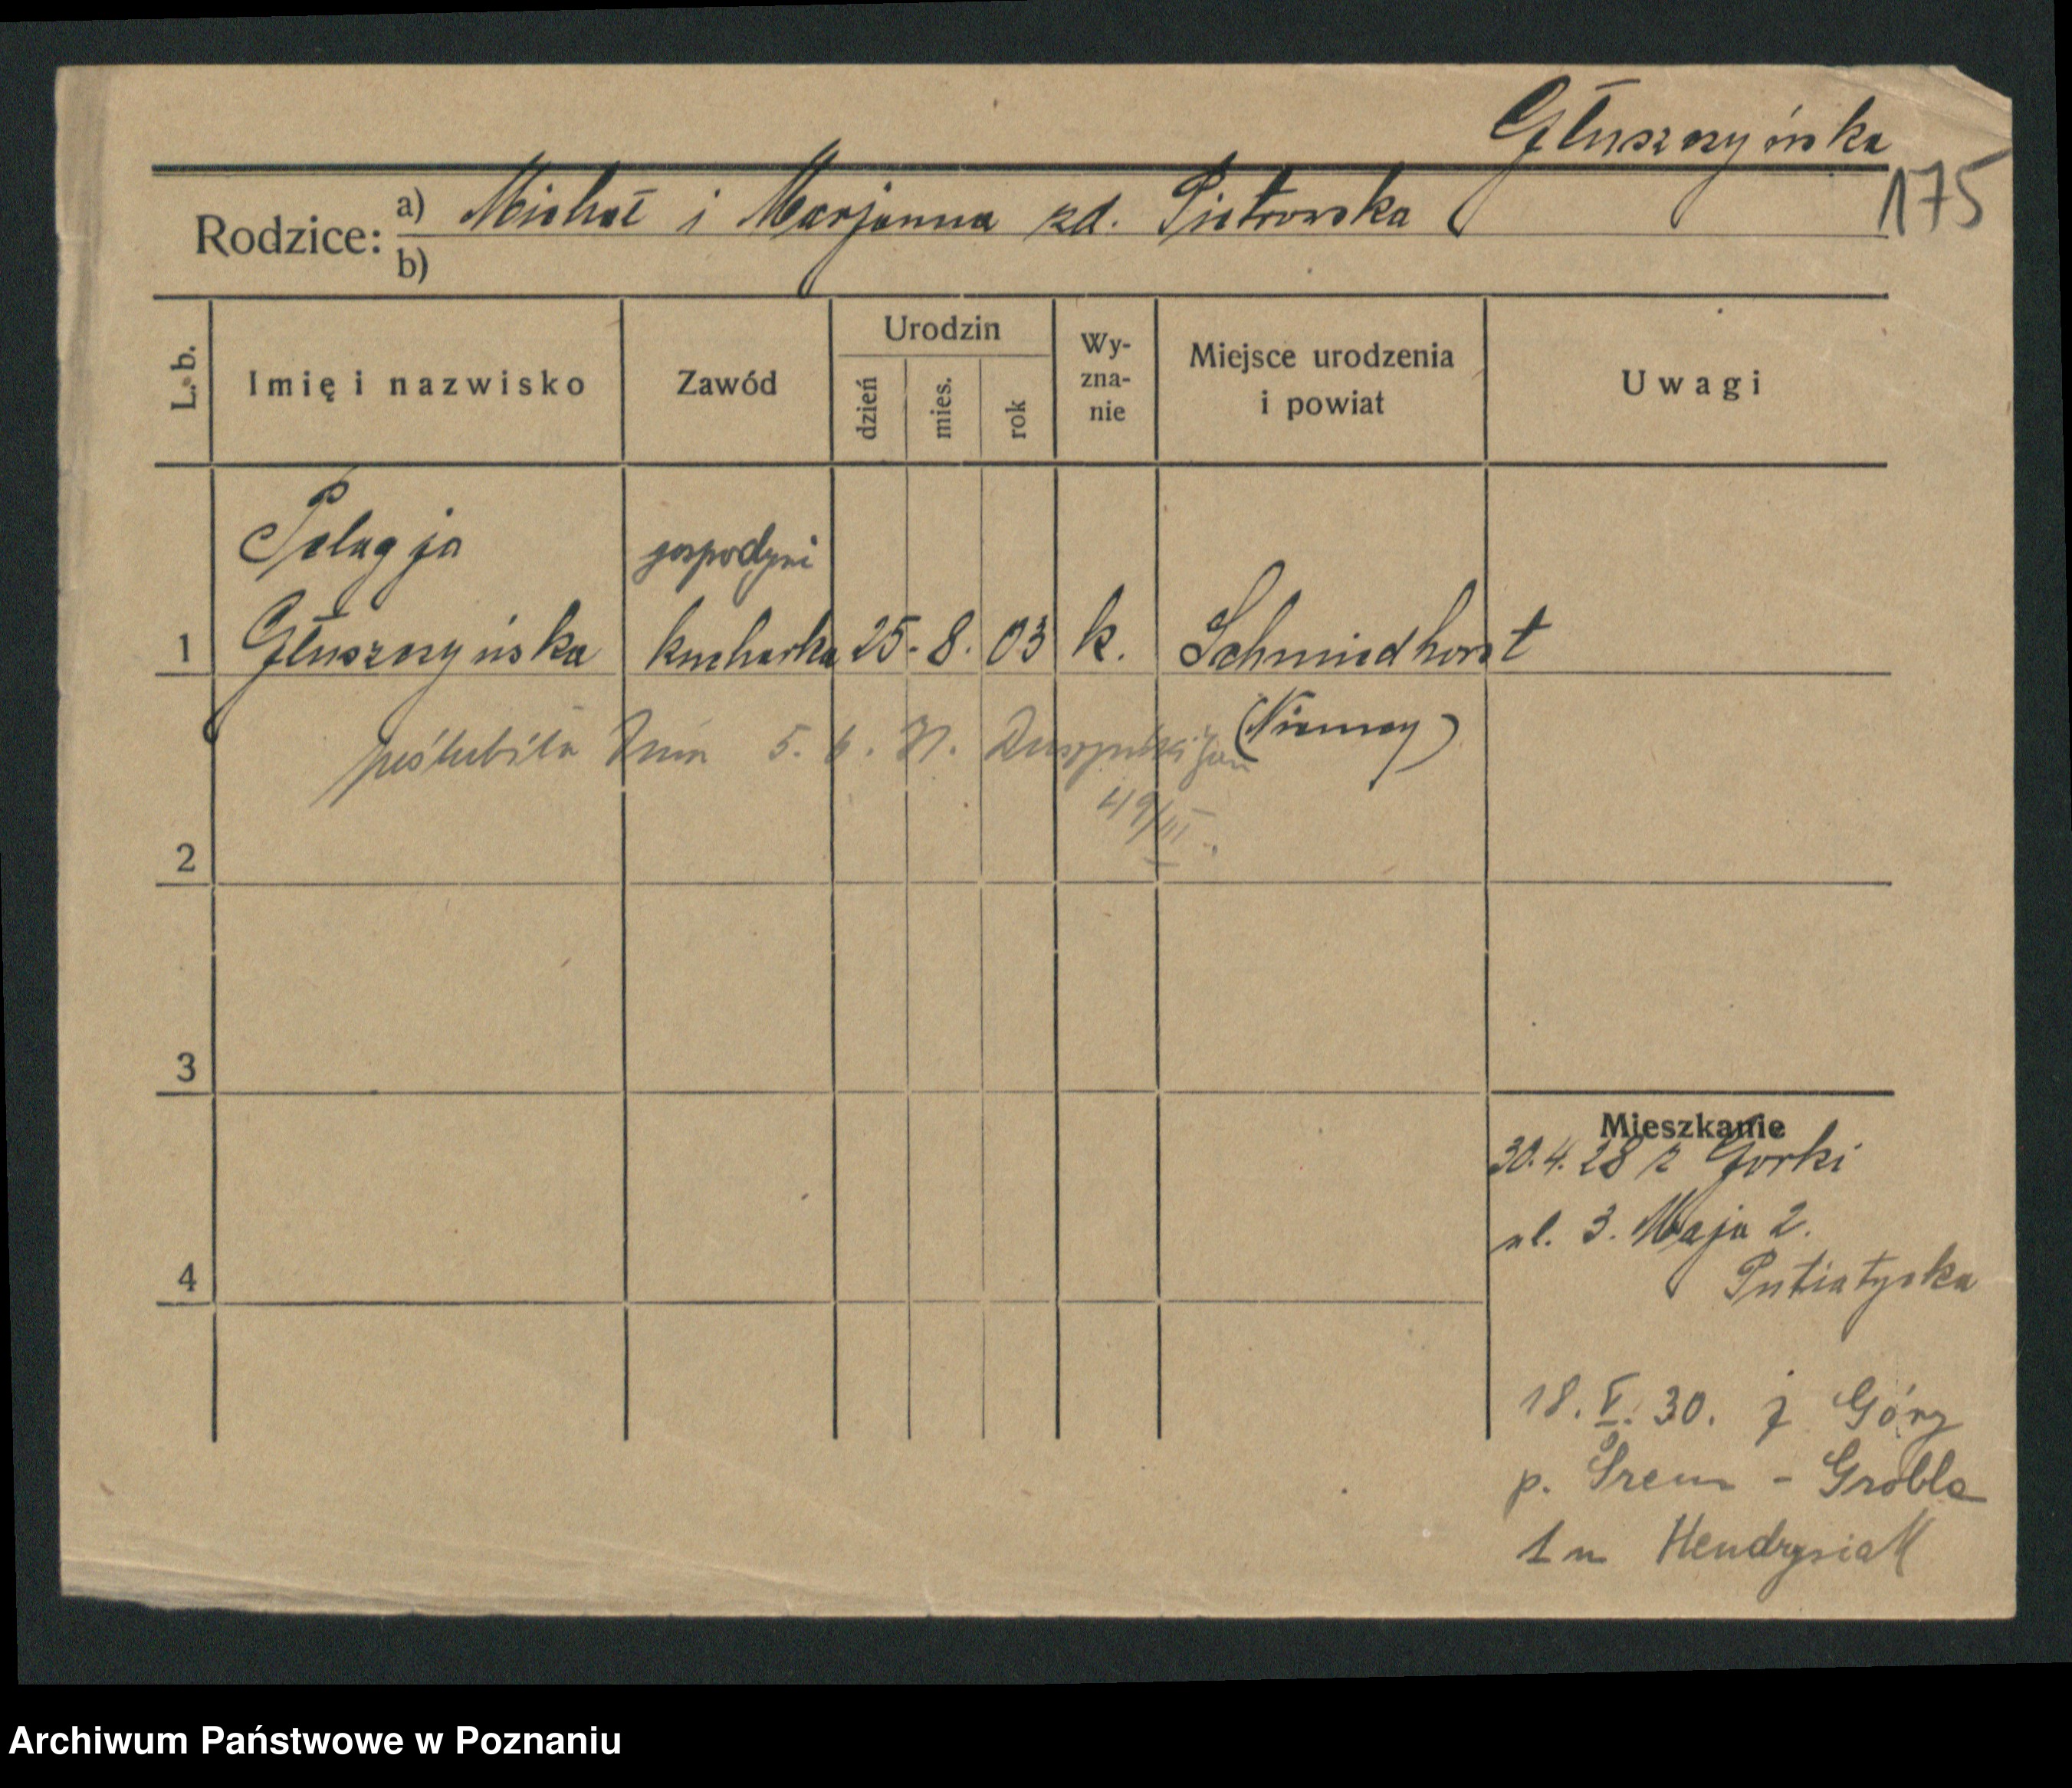 Głuszczyńska
175
Rodzice: a) Michał i Marjanna zd. Piotrowska
b)
L. b. Imię i nazwisko Zawód Urodzin dzień mies. rok Wy-zna-nie Miejsce urodzenia i powiat Uwagi
Pelagja gospodyni
1 Głuszczyńska kucharka 25. 8. 03 k. Schmiedhorst
(Niemcy)
poślubiła dnia 5. 6. 31. Jan
49/III.
2
3
Mieszkanie
30.4.28 z Górki
ul. 3. Maja 2.
Putiatycka
4
18. V. 30. z Góry
p. Śrem - Grobla
1 m Hendrysiak
Archiwum Państwowe w Poznaniu